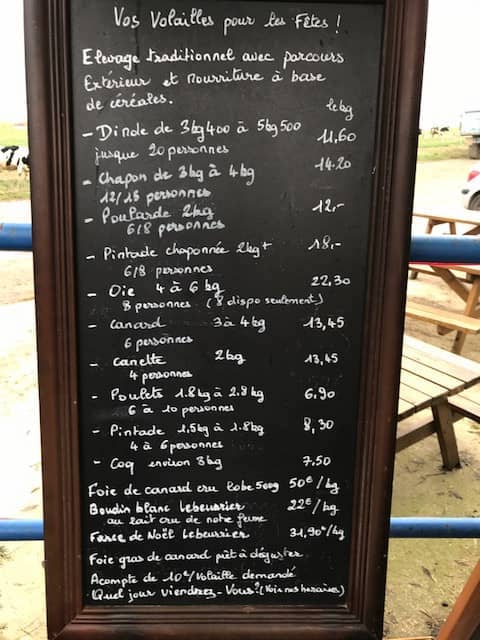 Vos Volailles pour les Fêtes !
Elevage traditionnel avec parcours
Extérieur et nourriture à base
de céréales.
le kg
- Dinde de 3kg400 à 5kg500 11,60
jusque 20 personnes
- Chapon de 3kg à 4kg 14.20
12/15 personnes
- Poularde 2kg 12,-
6/8 personnes
- Pintade chaponnée 2kg+ 18,-
6/8 personnes
- Oie 4 à 6 kg 22,30
8 personnes (8 dispo seulement)
- Canard 3 à 4kg 13,45
6 personnes
- Canette 2kg 13,45
4 personnes
- Poulets 1.8kg à 2.8kg 6.90
6 à 10 personnes
- Pintade 1,5kg à 1.8kg 8,30
4 à 6 personnes
- Coq environ 3kg 7.50
Foie de canard cru lobe 500g 50€/kg
Boudin blanc Lebeurrier 22€/kg
au lait cru de notre ferme
Farce de Noël Lebeurrier 31,90€/kg
Foie gras de canard prêt à déguster
Acompte de 10€/Volaille demandé
Quel jour viendrez-Vous? (Voir nos horaires)